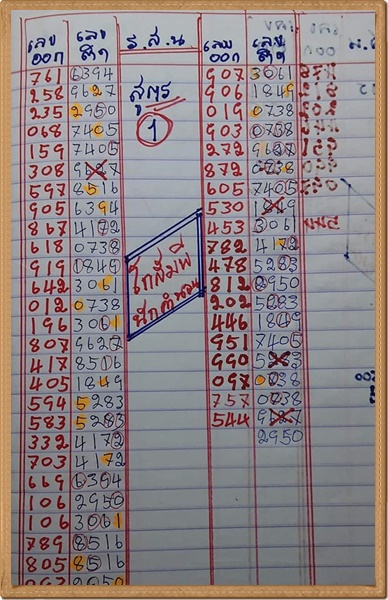 เลข ออก เลข ชิด
761 6394
258 9627
235 2950
068 7405
159 7405
308 9627
597 8516
905 6394
867 4172
618 0738
919 1849
642 3061
012 0738
196 3061
807 9627
417 8516
405 1849
594 5283
583 5283
332 4172
703 4172
669 6394
106 2950
106 3061
789 8516
805 8516
ธ.ส.น
สูตร
1
โกสัมพี
เลข ออก เลข
907 3061
906 1849
019 0738
903 0738
272 9627
872 0738
605 7405
530 1849
453 3061
782 4172
478 5283
812 2950
202 5283
446 1849
951 7405
990 5283
097 0738
757 0738
544 9627
2950